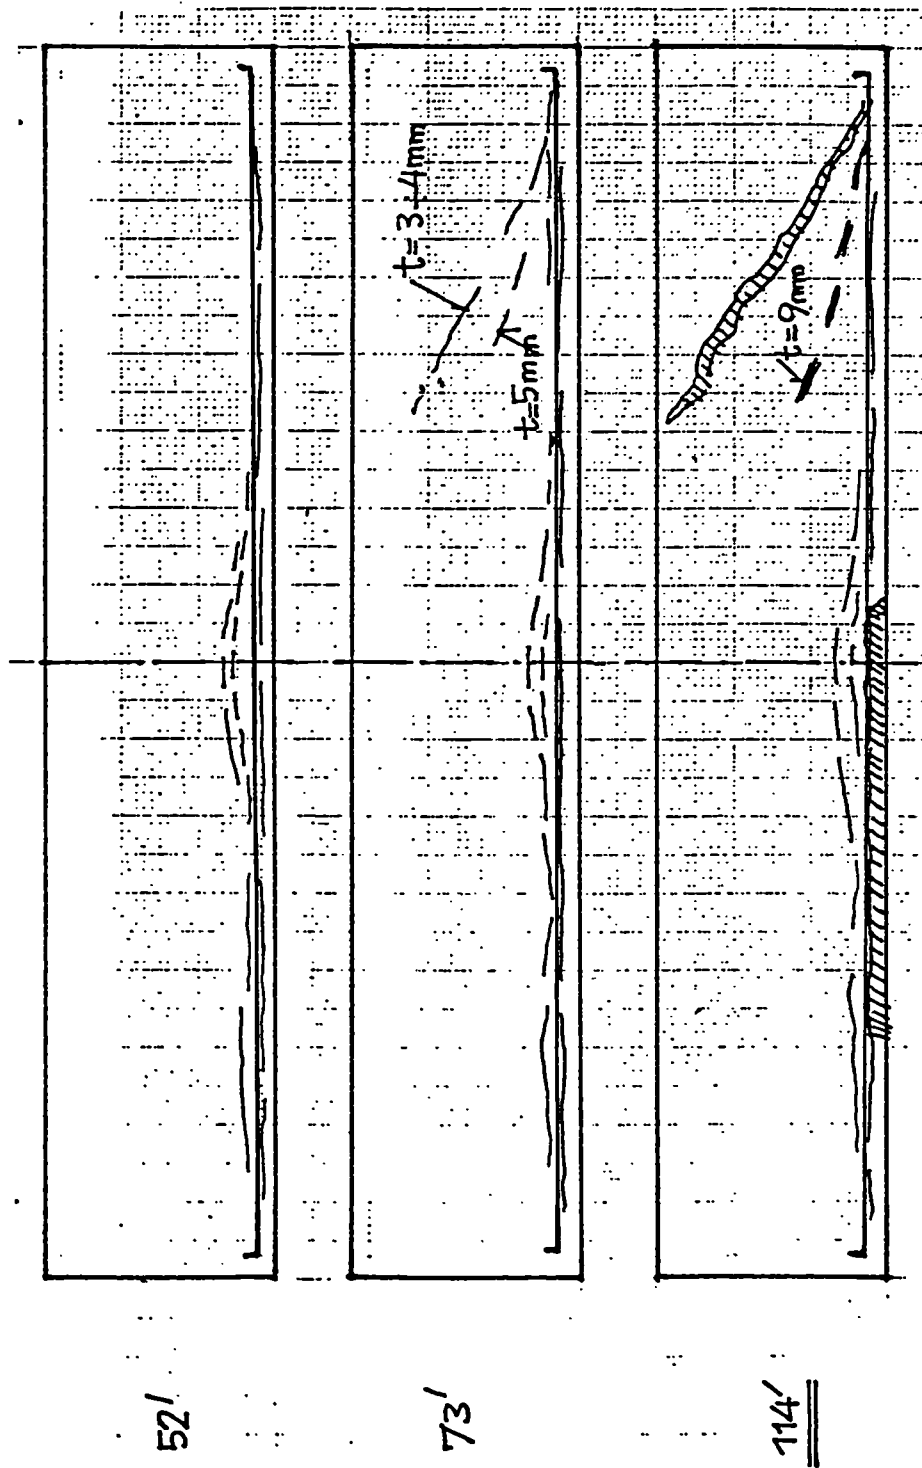 52′
73′
t=3-4mm
t=5mm
114′
t=9mm